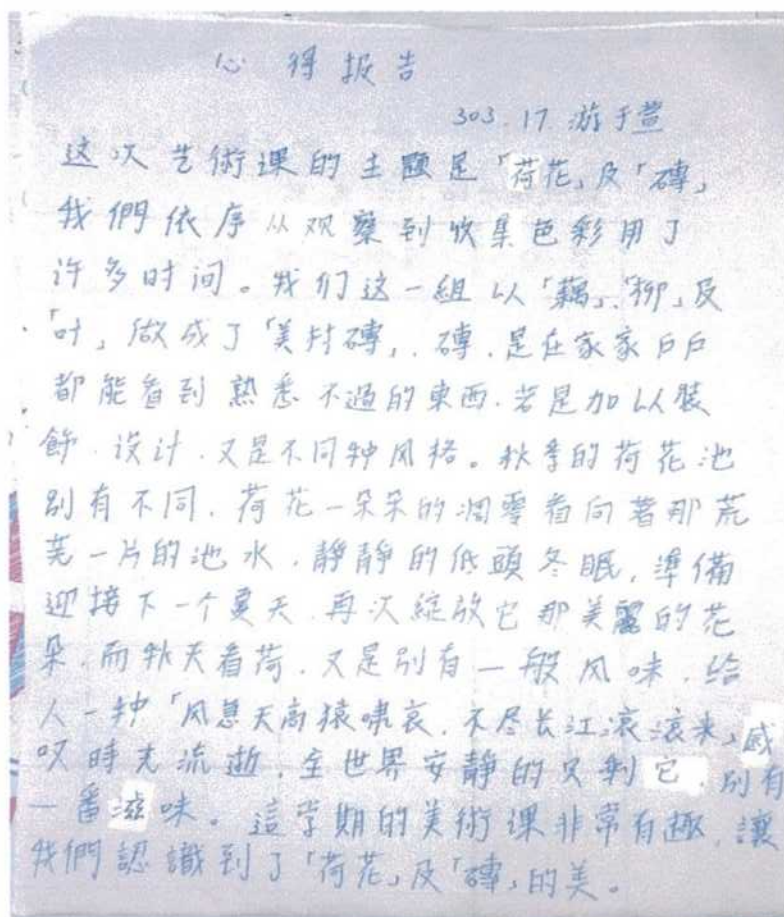 心得报告
303.17.游于萱
这次艺術课的主題是「荷花」及「磚」
我們依序从观察到收集色彩用了
许多时间。我们这一組以「藕」、「柳」及
「叶」做成了「美村磚」.磚.是在家家戶戶
都能看到熟悉不過的東西.若是加以裝
飾.设计.又是不同种风格。秋季的荷花池
别有不同.荷花一朵朵的凋零看向著那荒
芜一片的池水.靜靜的低頭冬眠,準備
迎接下一个夏天.再次綻放它那美麗的花
朵.而秋天看荷.又是别有一般风味.给
人一种「风急天高猿嘯哀.不尽长江滚滚来」感
叹時光流逝.全世界安靜的只剩它.别有
一番滋味。這学期的美術课非常有趣.讓
我們認識到了「荷花」及「磚」的美。